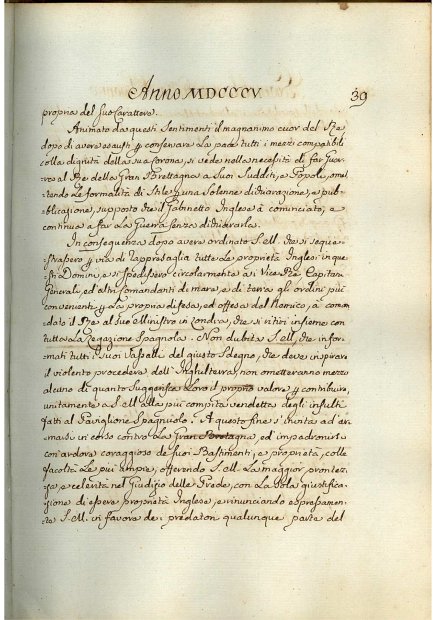 Anno MDCCCV.
39
propria del suo Carattere.
Animato da questi Sentimenti il magnanimo cuor del Re
dopo di avere esausti p conservare la pace tutti i mezzi compatibili
colla dignità della sua corona, si vede nella necessità di far Guer-
ra al Re della Gran Brettagna a Suoi Sudditi, e Popoli, omet-
tendo Le formalità di Stile p una Solenne dichiarazione, e pub-
blicazione, supposto che il Gabinetto Inglese à cominciato, e
continua a far La Guerra Senza dichiararla.
In conseguenza dopo avere ordinato S. M. che si seque-
strassero p via di rappresaglia tutte Le proprietà Inglesi in que-
sti Domini, e si spedissero circolarmente ai Vice-Re, Capitani
Generali, ed altri Comandanti di mare, e di terra gli ordini più
convenienti p La propria difesa, ed offesa del Nemico, à coman-
dato il Re al suo Ministro in Londra, che si ritiri insieme con
tutta La Legazione Spagnola. Non dubita S. M., che infor-
mati tutti i suoi Vassalli del giusto Sdegno, che deve inspirare
il violento procedere dell' Inghilterra, non ometteranno mezzo
alcuno di quanto Suggerisca Loro il proprio valore p contribuire,
unitamente a S. M. alla più compita vendetta degli insulti
fatti al Paviglione Spagnuolo. A questo fine s'invita ad ar-
marsi in corso contro La Gran Bretagna, ed impadronirsi
con ardore coraggioso de suoi Bastimenti, e proprietà, colle
facoltà Le più ampie, offerendo S. M. La maggior prontez-
za, e celerità nel Giudizio delle Prede, con La Sola giustifica-
zione di essere proprietà Inglese, e rinunciando espressamen-
te S. M. in favore de' predatori qualunque parte del